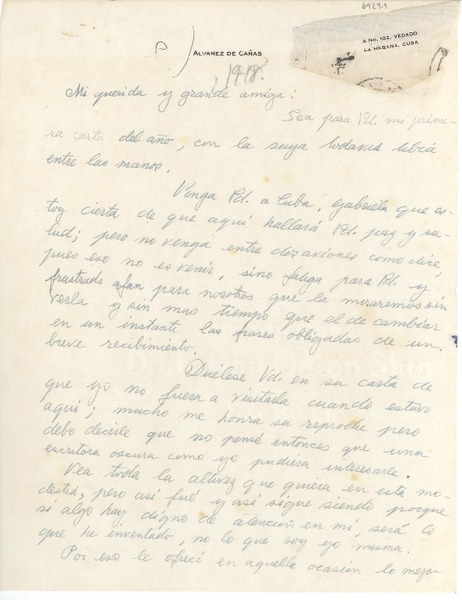 6929-1
ALVAREZ DE CAÑAS
A NO. 102, VEDADO
LA HABANA, CUBA
Mi querida y grande amiga:
Sea para Vd. mi prime-
ra carta del año, con la suya todavía tibia
entre las manos.
Venga Vd. a Cuba, Gabriela que es-
toy cierta de que aquí hallará Vd. paz y sa-
lud; pero no venga entre dos aviones como dice,
pues eso no es venir, sino fatiga para Vd. y
frustrado afan para nosotros que la miraremos sin
verla y sin mas tiempo que el de cambiar
en un instante las frases obligadas de un
breve recibimiento.
Duélese Vd. en su carta de
que yo no fuera a visitarla cuando estuvo
aquí; mucho me honra su reproche pero
debo decirle que no pensé entonces que una
escritora oscura como yo pudiera interesarle.
Vea toda la altivez que quiera en esta mo-
destia, pero así fué y así sigue siendo porque
si algo hay digno de atención en mí, será lo
que he inventado, no lo que soy yo misma.
Por eso le ofrecí en aquella ocasión lo mejor